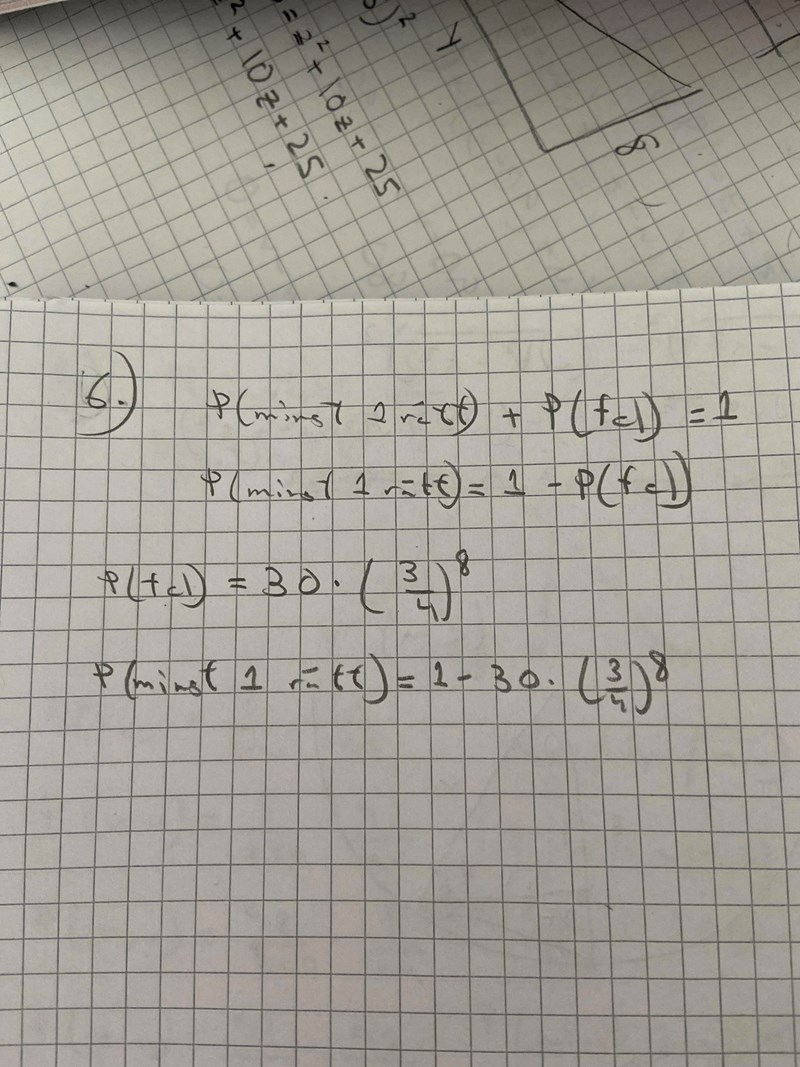 = z² + 10z + 25
² + 10z + 25
)²
8
6.) P(minst 1 rätt) + P(fel) = 1
P(minst 1 rätt) = 1 - P(fel)
P(fel) = 30 · (3/4)⁸
P(minst 1 rätt) = 1 - 30 · (3/4)⁸